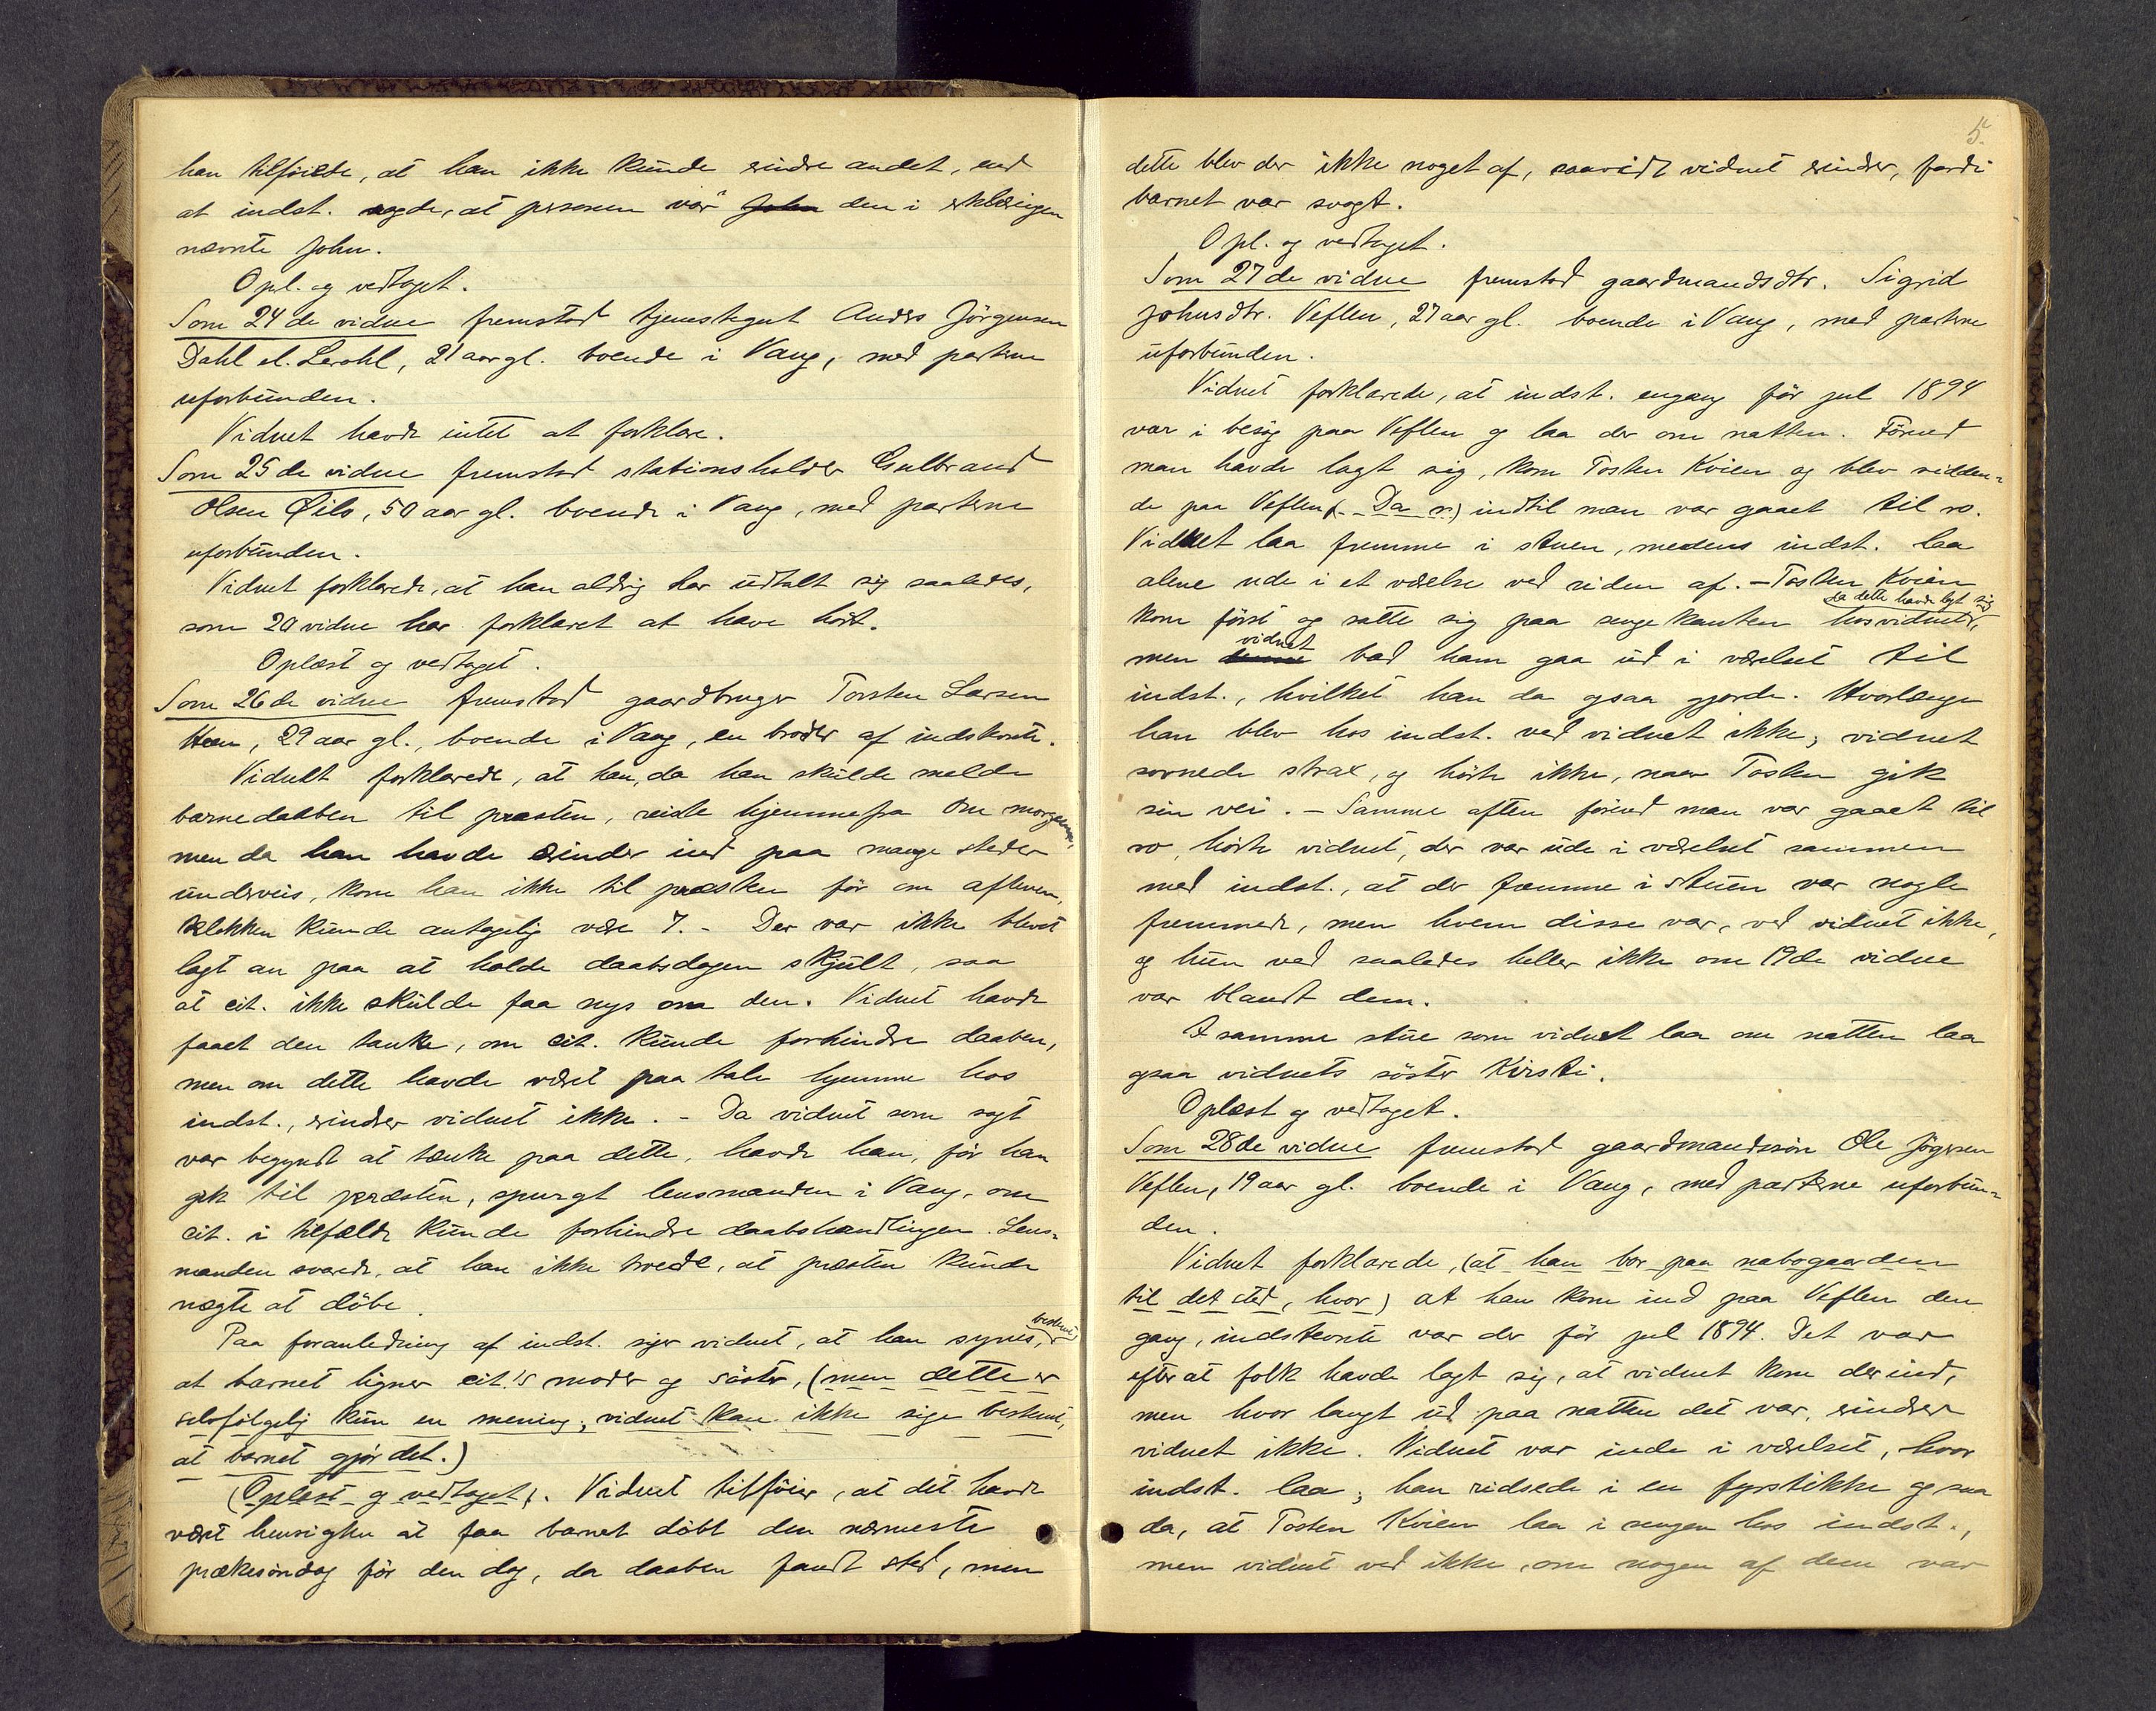 han tilföiede, at han ikke kunde erindre andet, end
at indst. sagde, at personen var John den i erklæringen
nævnte John.
Opl. og vedtaget.
Som 24de vidne fremstod tjenestegut Anders Jörgensen
Dahl el. Lerohl, 21 aar gl. boende i Vang, med parterne
uforbunden.
Vidnet havde intet at forklare.
Som 25de vidne fremstod stationsholder Gulbrand
Olsen Øilo, 50 aar gl. boende i Vang, med parterne
uforbunden.
Vidnet forklarede, at han aldrig har udtalt sig saaledes,
som 20 vidne har forklaret at have hört.
Oplæst og vedtaget.
Som 26de vidne fremstod gaardbruger Torsten Larsen
Hven, 29 aar gl., boende i Vang, en broder af indstevnte.
Vidnet forklarede, at han, da han skulde melde
barnedaaben til præsten, reiste hjemmefra om morgenen,
men da han havde ærinder ind paa mange steder
underveis, kom han ikke til præsten för om aftenen,
klokken kunde antagelig være 7. - Der var ikke blevet
lagt an paa at holde daabsdagen skjult, saa
at cit. ikke skulde faa nys om den. Vidnet havde
faaet den tanke, om cit. kunde forhindre daaben,
men om dette havde været paa tale hjemme hos
indst., erindrer vidnet ikke. - Da vidnet som sagt
var begyndt at tænke paa dette, havde han, för han
gik til præsten, spurgt lensmanden i Vang, om
cit. i tilfælde kunde forhindre daabshandlingen. Lens-
manden svarede, at han ikke troede, at præsten kunde
nægte at döbe.
Paa foranledning af indst. siger vidnet, at han synes, bestemt
at barnet ligner cit.'s moder og söster, (men dette er
selvfölgelig kun en mening; vidnet kan ikke sige bestemt,
at barnet gjör det.)
(Oplæst og vedtaget). Vidnet tilföier, at det havde
været hensigten at faa barnet döbt den nærmeste
prækesöndag för den dag, da daaben fandt sted, men
5.
dette blev der ikke noget af, saavidt vidnet erindrer, fordi
barnet var svagt.
Opl. og vedtaget.
Som 27de vidne fremstod gaardmandsdtr. Sigrid
Johnsdtr. Veflen, 27 aar gl. boende i Vang, med parterne
uforbunden.
Vidnet forklarede, at indst. engang för jul 1894
var i besög paa Veflen og laa der om natten. Förend
man havde lagt sig, kom Tosten Kvien og blev sidden-
de paa Veflen (Da v.) indtil man var gaaet til ro.
Vidnet laa fremme i stuen, medens indst. laa
alene ude i et værelse ved siden af. - Tosten Kvien
da dette havde lagt sig
kom först og satte sig paa sengekanten hos vidnet,
vidnet
men denne bad ham gaa ud i værelset til
indst., hvilket han da ogsaa gjorde. Hvorlænge
han blev hos indst. ved vidnet ikke; vidnet
sovnede strax, og hörte ikke, naar Tosten gik
sin vei. - Samme aften förend man var gaaet til
ro, hörte vidnet, der var ude i værelset sammen
med indst., at der fremme i stuen var nogle
fremmede, men hvem disse var, ved vidnet ikke,
og hun ved saaledes heller ikke om 19de vidne
var blandt dem.
I samme stue som vidnet laa om natten laa
ogsaa vidnets söster Kirsti.
Oplæst og vedtaget.
Som 28de vidne fremstod gaardmandssön Ole Jögersen
Veflen, 19 aar gl. boende i Vang, med parterne uforbun-
den.
Vidnet forklarede, (at han bor paa nabogaarden
til det sted, hvor) at han kom ind paa Veflen den
gang, indstevnte var der för jul 1894. Det var
efter at folk havde lagt sig, at vidnet kom derind,
men hvor langt ud paa natten det var, erindrer
vidnet ikke. Vidnet var inde i værelset, hvor
indst. laa; han ridsede i en fyrstikke og saa
da, at Tosten Kvien laa i sengen hos indst.,
men vidnet ved ikke, om nogen af dem var